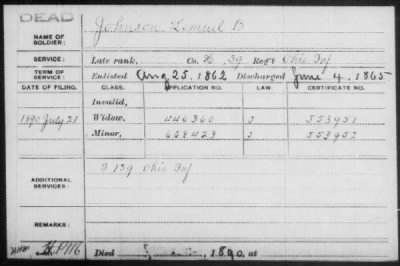 DEAD
NAME OF SOLDIER: Johnson, Lemuel B
SERVICE: Late rank, Co. , 39 Reg't Ohio Inf
TERM OF SERVICE: Enlisted Aug 25, 1862 Discharged June 4, 1865
DATE OF FILING. CLASS. APPLICATION NO. LAW. CERTIFICATE NO.
Invalid,
1890 July 21 Widow, 446360 553951
Minor, 553952
ADDITIONAL SERVICES: 139 Ohio Inf
REMARKS:
Died , 1890, at